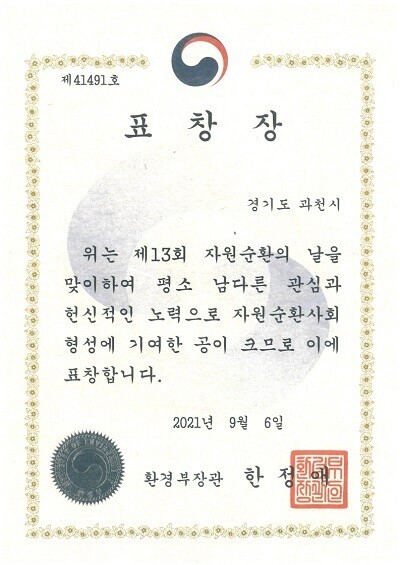 제41491호
표 창 장
경기도 과천시
위는 제13회 자원순환의 날을
맞이하여 평소 남다른 관심과
헌신적인 노력으로 자원순환사회
형성에 기여한 공이 크므로 이에
표창합니다.
2021년 9월 6일
환경부장관 한 정 애